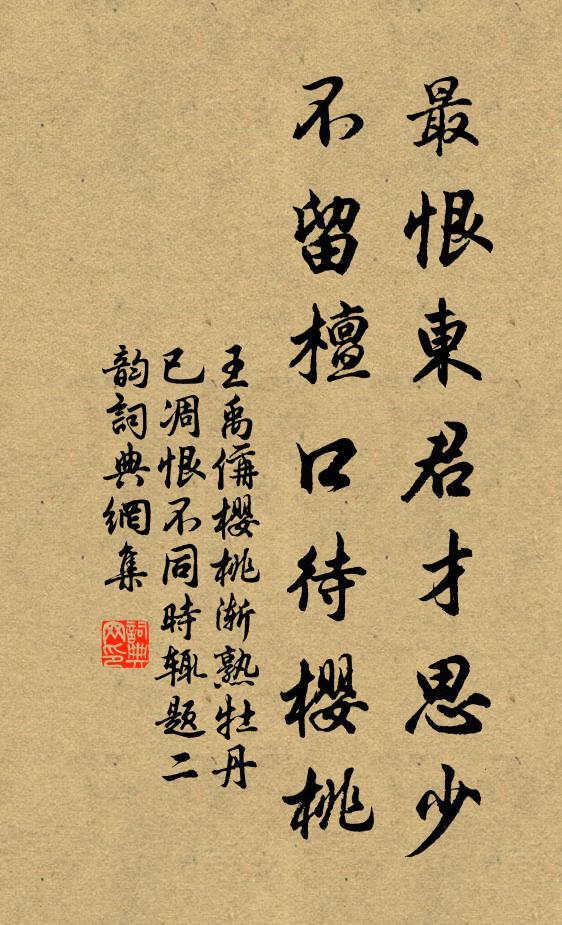 最恨東君才思少
不留檀口待櫻桃
王禹偁櫻桃漸熟牡丹
已凋恨不同時輒題二
韵詞典網集
詞典网印